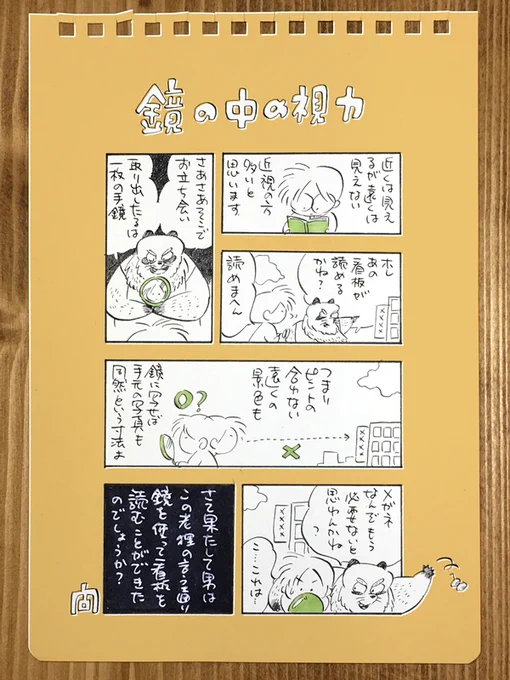 鏡の中の視力
近くは見え
るが遠くは
見えない
近視の方
多いと
思います
ホレ
あの
看板が
読める
かね?
読めまへん
さあさあそこで
お立ち会い
取り出したるは
一枚の手鏡
つまり
ピントの
合わない
遠くの
景色も
鏡に写せば
手元の写真も
同然という寸法よ
?
メガネ
なんてもう
必要ないと
思わんかね
?
こ…これは…
さて果たして男は
この老狸の言う通り
鏡を使って看板を
読むことができた
のでしょうか?